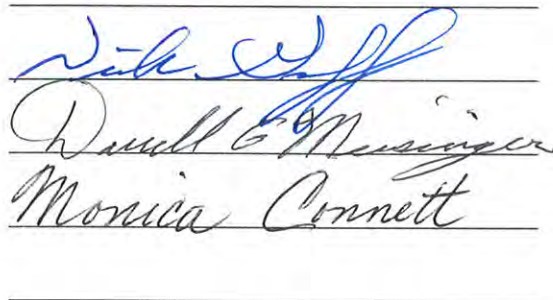 Dick
Darrell E Meisinger
Monica Connett